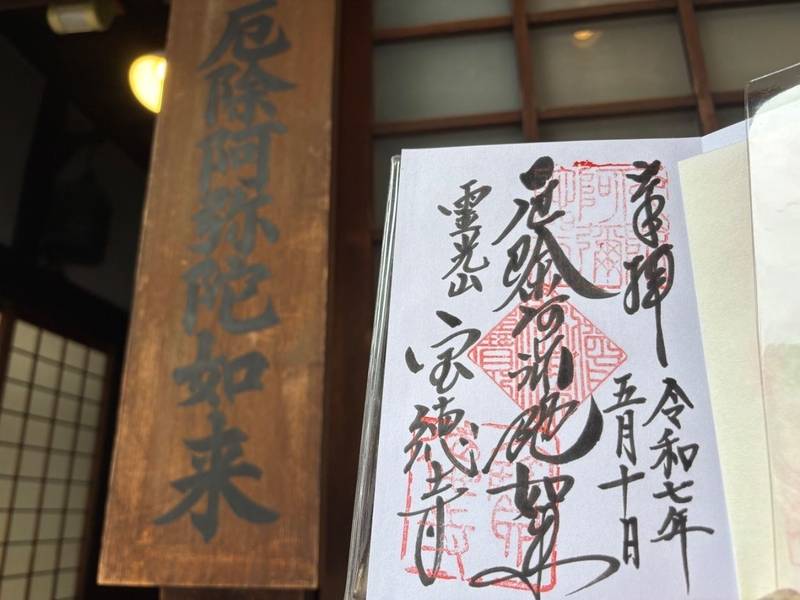 厄除阿弥陀如来
奉拝
令和七年
五月十日
厄除阿弥陀如来
霊光山
宝徳寺